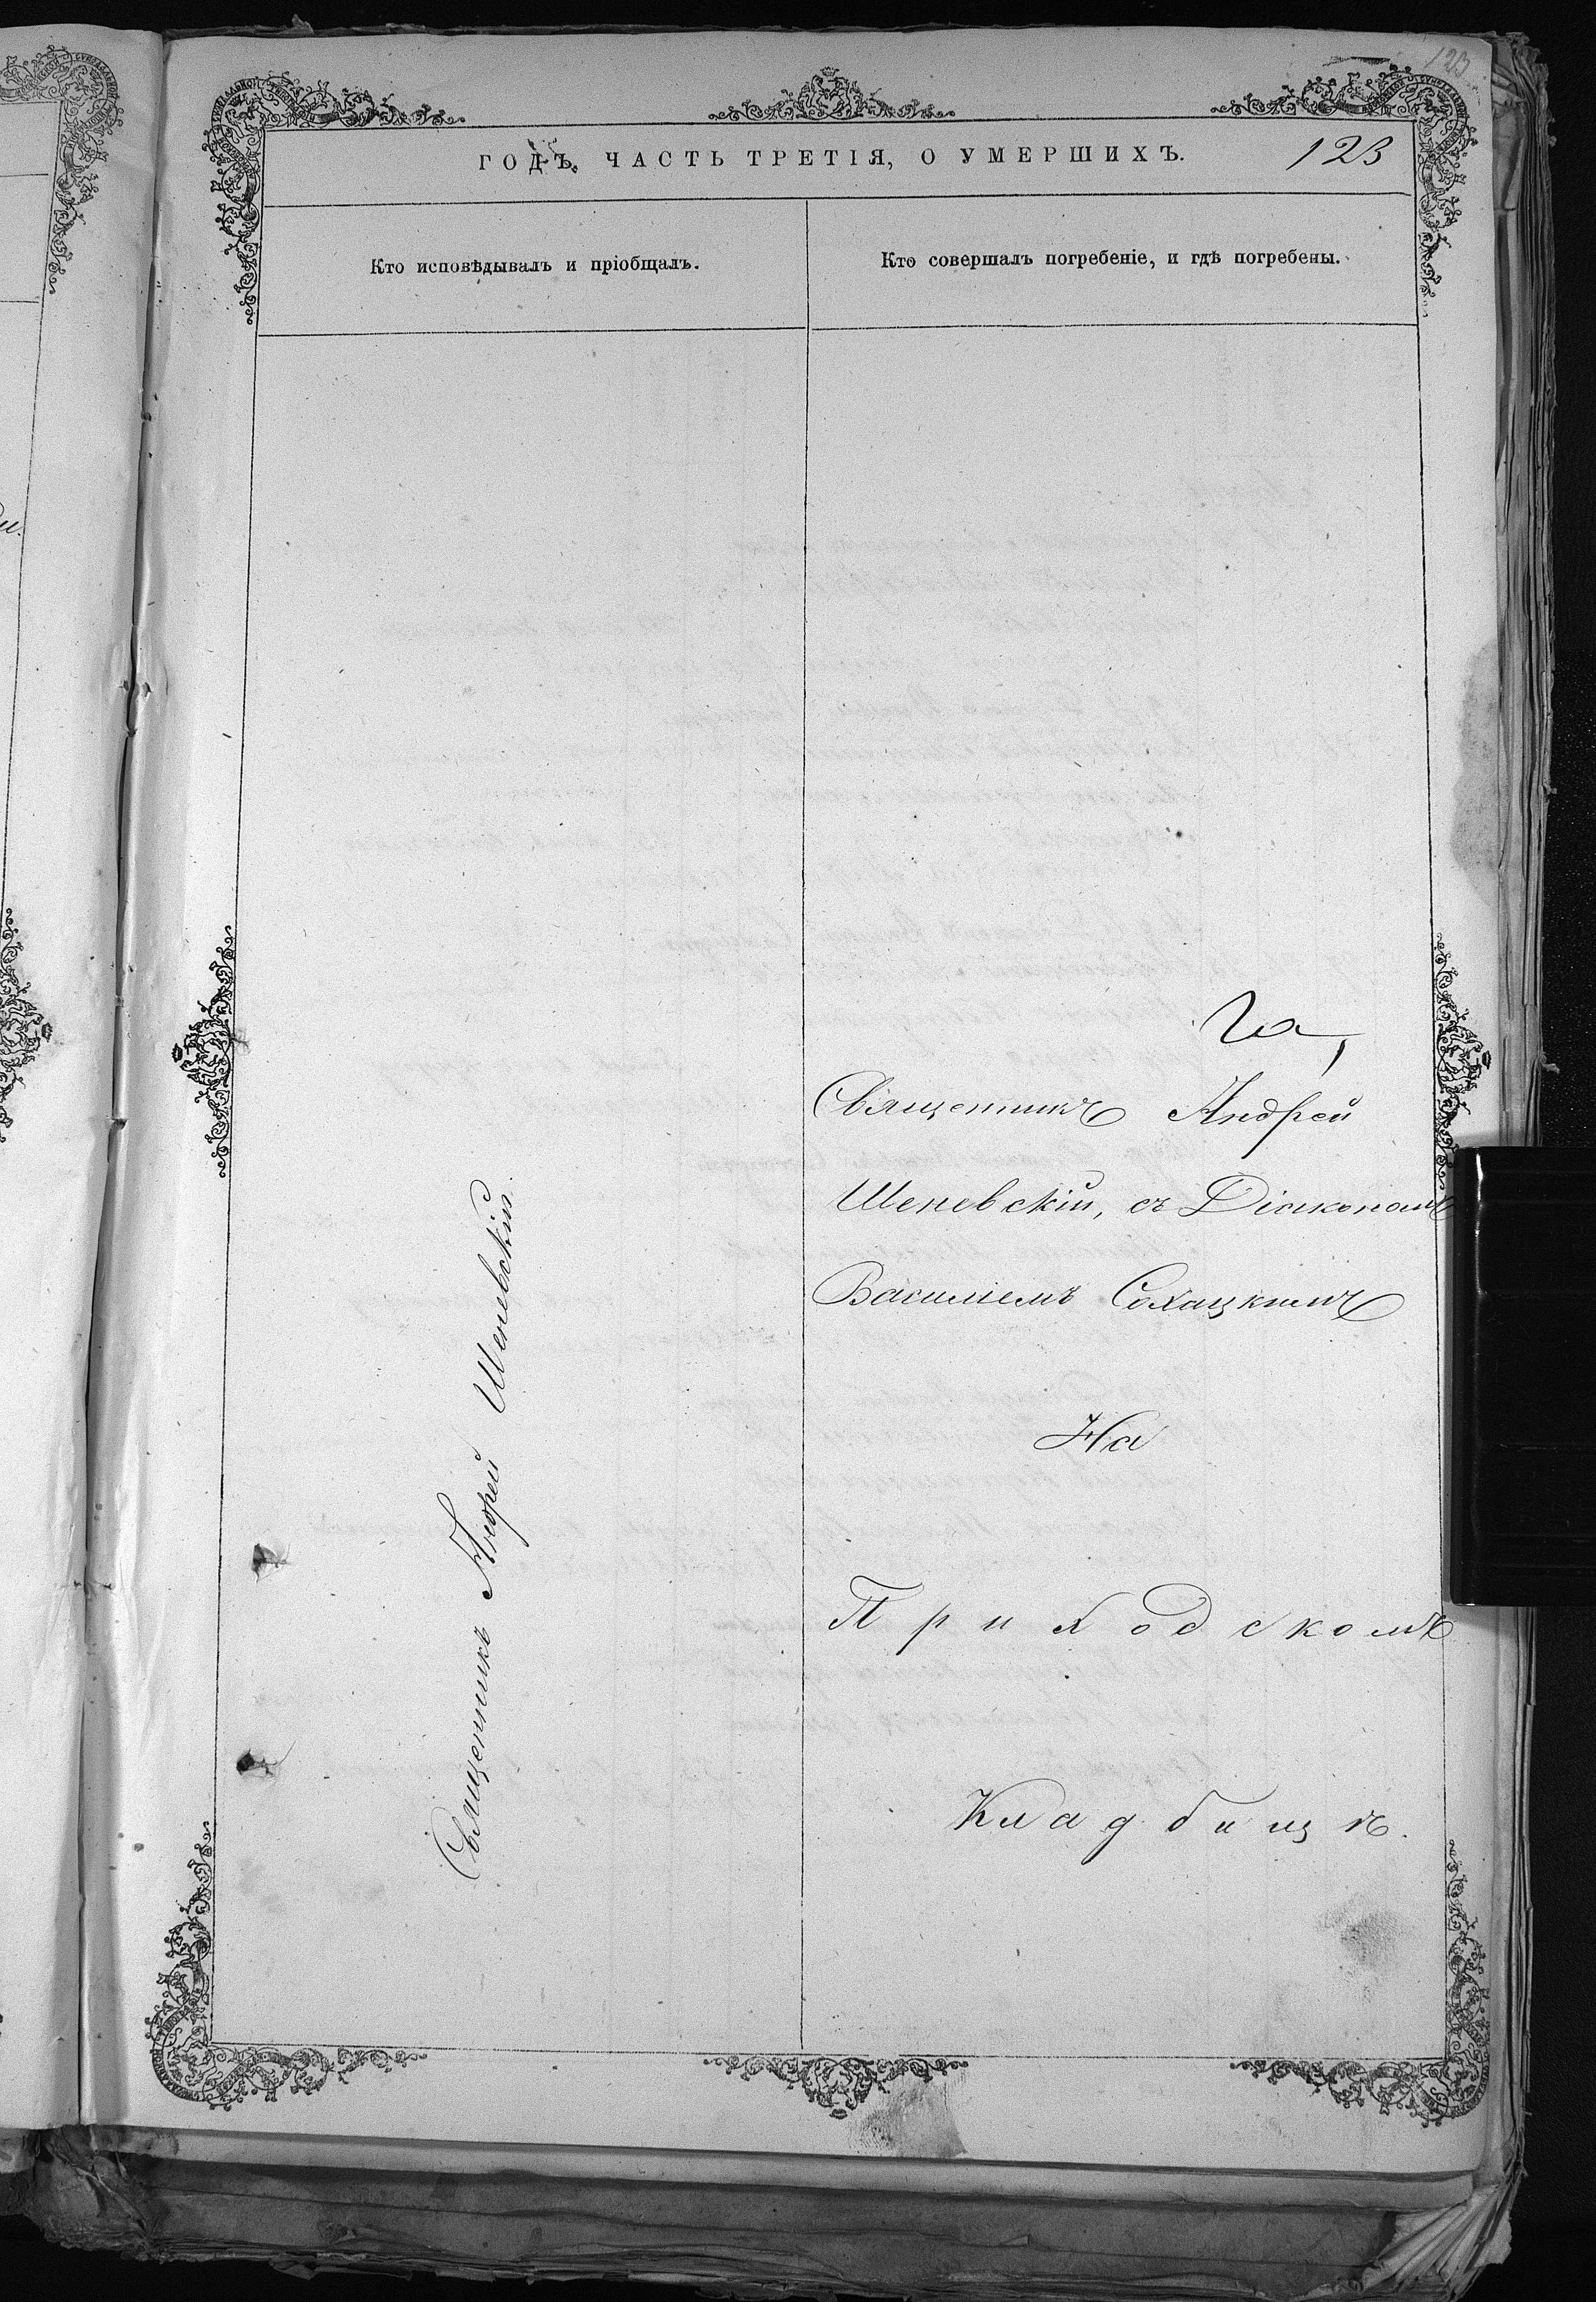 123
ГОДЪ. ЧАСТЬ ТРЕТІЯ, О УМЕРШИХЪ. 123
Кто исповѣдывалъ и пріобщалъ.
Кто совершалъ погребеніе, и гдѣ погребены.
Священникъ Андрей Шеневскій.
Священникъ Андрей
Шеневскій, съ Діакономъ
Василіемъ Сохацкимъ
На
Приходскомъ
Кладбищѣ.